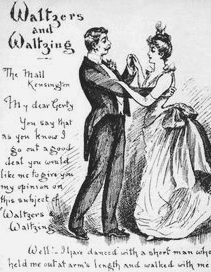 Waltzers
and
Waltzing
The Mall
Kensington
My dear Gerty
You say that
as you know I
go out a good
deal you would
like me to give you
my opinion on
this subject of
"Waltzers
Waltzing
Well! I have danced with a short man who
held me out at arm's length and walked with me